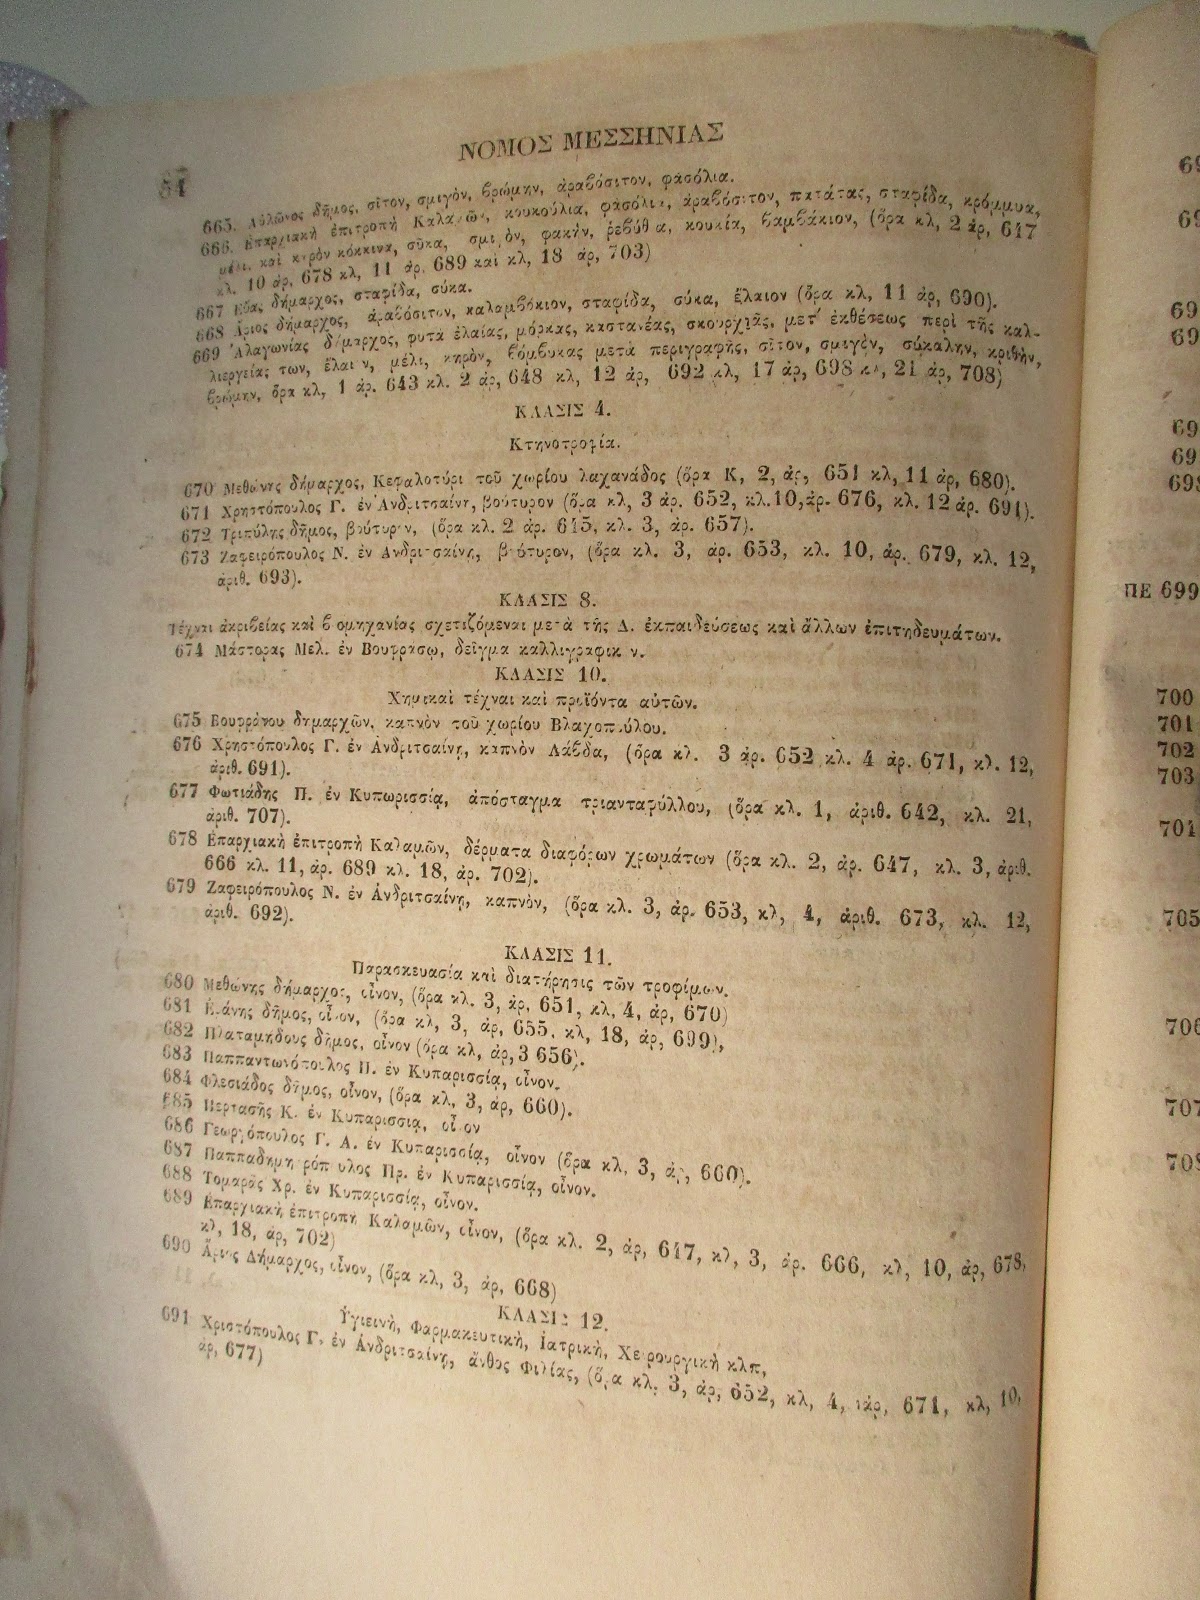 ΝΟΜΟΣ ΜΕΣΣΗΝΙΑΣ
54
665. Αὐλῶνος δῆμος, σῖτον, σμιγὸν, βρώμην, ἀραβόσιτον, φασόλια.
666. Ἐπαρχιακὴ ἐπιτροπὴ Καλαμῶν, κουκούλια, φασόλια, ἀραβόσιτον, πατάτας, σταφίδα, κρόμμυα,
μέλι, καὶ κηρὸν κόκκινα, σῦκα, σμιγὸν, φακὴν, ῥεβύθια, κουκία, βαμβάκιον, (ὅρα κλ, 2 ἀρ, 647
κλ. 10 ἀρ, 678 κλ, 11 ἀρ. 689 καὶ κλ, 18 ἀρ, 703)
667 Εὔας δήμαρχος, σταφίδα, σύκα.
668 Ἄριος δήμαρχος, ἀραβόσιτον, καλαμβόκιον, σταφίδα, σύκα, ἔλαιον (ὅρα κλ, 11 ἀρ, 690).
669 Ἀλαγωνίας δήμαρχος, φυτὰ ἐλαίας, μόρκας, καστανέας, σκουρχιᾶς, μετ' ἐκθέσεως περὶ τῆς καλ-
λιεργείας των, ἔλαιον, μέλι, κηρὸν, βόμβυκας μετὰ περιγραφῆς, σῖτον, σμιγὸν, σύκαλην, κριθὴν,
βρώμην, ὅρα κλ, 1 ἀρ. 643 κλ. 2 ἀρ, 648 κλ, 12 ἀρ, 692 κλ, 17 ἀρ, 698 κλ, 21 ἀρ, 708)
ΚΛΑΣΙΣ 4.
Κτηνοτροφία.
670 Μεθώνης δήμαρχος, Κεφαλοτύρι τοῦ χωρίου λαχανάδος (ὅρα Κ, 2, ἀρ, 651 κλ, 11 ἀρ, 680).
671 Χρηστόπουλος Γ. ἐν Ἀνδριτσαίνῃ, βούτυρον (ὅρα κλ, 3 ἀρ. 652, κλ.10, ἀρ. 676, κλ. 12 ἀρ. 691).
672 Τριπύλης δῆμος, βούτυρον, (ὅρα κλ. 2 ἀρ. 645, κλ. 3, ἀρ. 657).
673 Ζαφειρόπουλος Ν. ἐν Ἀνδριτσαίνῃ, βούτυρον, (ὅρα κλ. 3, ἀρ. 653, κλ. 10, ἀρ. 679, κλ. 12,
ἀριθ. 693).
ΚΛΑΣΙΣ 8.
Τέχναι ἀκριβείας καὶ βιομηχανίας σχετιζόμεναι μετὰ τῆς Δ. ἐκπαιδεύσεως καὶ ἄλλων ἐπιτηδευμάτων.
674 Μάστορας Μελ. ἐν Βουφράσῳ, δεῖγμα καλλιγραφικὸν.
ΚΛΑΣΙΣ 10.
Χημικαὶ τέχναι καὶ προϊόντα αὐτῶν.
675 δημαρχῶν, καπνὸν τοῦ χωρίου Βλαχοπούλου.
676 Χρηστόπουλος Γ. ἐν Ἀνδριτσαίνῃ, καπνὸν Λάβδα, (ὅρα κλ. 3 ἀρ. 652 κλ. 4 ἀρ. 671, κλ. 12,
ἀριθ. 691).
677 Φωτιάδης Π. ἐν Κυπωρισσίᾳ, ἀπόσταγμα τριανταφύλλου, (ὅρα κλ. 1, ἀριθ. 642, κλ. 21,
ἀριθ. 707).
678 Ἐπαρχιακὴ ἐπιτροπὴ Καλαμῶν, δέρματα διαφόρων χρωμάτων (ὅρα κλ. 2, ἀρ. 647, κλ. 3, ἀριθ.
666 κλ. 11, ἀρ. 689 κλ. 18, ἀρ. 702).
679 Ζαφειρόπουλος Ν. ἐν Ἀνδριτσαίνῃ, καπνὸν, (ὅρα κλ. 3, ἀρ. 653, κλ, 4, ἀριθ. 673, κλ. 12,
ἀριθ. 692).
ΚΛΑΣΙΣ 11.
Παρασκευασία καὶ διατήρησις τῶν τροφίμων.
680 Μεθώνης δήμαρχος, οἶνον, (ὅρα κλ. 3, ἀρ. 651, κλ, 4, ἀρ, 670)
681 Ἐράνης δῆμος, οἶνον, (ὅρα κλ, 3, ἀρ, 655, κλ, 18, ἀρ, 699),
682 Πλαταμήδους δῆμος, οἶνον (ὅρα κλ, ἀρ, 3 656).
683 Παππαντωνόπουλος Π. ἐν Κυπαρισσίᾳ, οἶνον.
684 Φλεσιάδος δῆμος, οἶνον, (ὅρα κλ, 3, ἀρ, 660).
685 Βερτασῆς Κ. ἐν Κυπαρισσίᾳ, οἶνον
686 Γεωργόπουλος Γ. Α. ἐν Κυπαρισσίᾳ, οἶνον (ὅρα κλ, 3, ἀρ, 660).
687 Παππαδημητρόπουλος Πρ. ἐν Κυπαρισσίᾳ, οἶνον.
688 Τομαρᾶς Χρ. ἐν Κυπαρισσίᾳ, οἶνον.
689 Ἐπαρχιακὴ ἐπιτροπὴ Καλαμῶν, οἶνον, (ὅρα κλ. 2, ἀρ, 647, κλ, 3, ἀρ. 666, κλ, 10, ἀρ, 678,
κλ, 18, ἀρ, 702)
690 Ἄριος Δήμαρχος, οἶνον, (ὅρα κλ, 3, ἀρ, 668)
ΚΛΑΣΙΣ 12.
Ὑγιεινὴ, Φαρμακευτικὴ, Ἰατρικὴ, Χειρουργικὴ κλπ,
691 Χριστόπουλος Γ. ἐν Ἀνδριτσαίνῃ, ἄνθος Φιλίας, (ὅρα κλ. 3, ἀρ, 652, κλ, 4, ἀρ, 671, κλ, 10,
ἀρ, 677)
ΠΕ 699
700
701
702
703
704
705
706
707
708